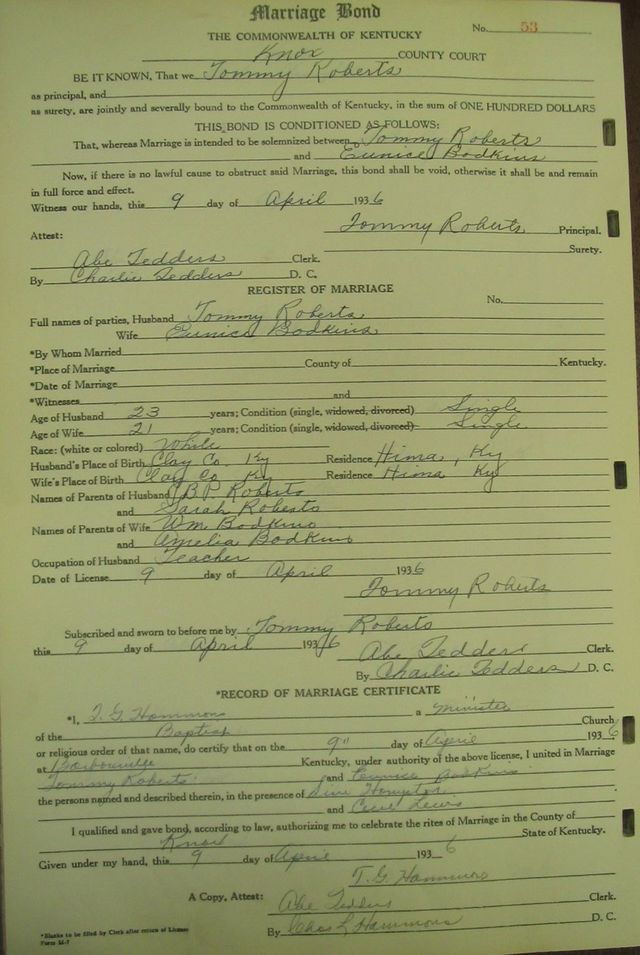 Marriage Bond
THE COMMONWEALTH OF KENTUCKY No. 53
Knox COUNTY COURT
BE IT KNOWN, That we Tommy Roberts
as principal, and
as surety, are jointly and severally bound to the Commonwealth of Kentucky, in the sum of ONE HUNDRED DOLLARS
THIS BOND IS CONDITIONED AS FOLLOWS:
That, whereas Marriage is intended to be solemnized between Tommy Roberts
and Eunice Bodkins
Now, if there is no lawful cause to obstruct said Marriage, this bond shall be void, otherwise it shall be and remain
in full force and effect.
Witness our hands, this 9 day of April 1936
Tommy Roberts Principal.
Attest: Surety.
Abe Tedders Clerk.
By Charlie Tedders D. C.
REGISTER OF MARRIAGE
No.
Full names of parties, Husband Tommy Roberts
Wife Eunice Bodkins
*By Whom Married
*Place of Marriage County of Kentucky.
*Date of Marriage
*Witnesses and
Age of Husband 23 years; Condition (single, widowed, divorced) Single
Age of Wife 21 years; Condition (single, widowed, divorced) Single
Race: (white or colored) White
Husband's Place of Birth Clay Co. Ky Residence Hima, Ky
Wife's Place of Birth Clay Co Ky Residence Hima Ky
Names of Parents of Husband B.P. Roberts
and Sarah Roberts
Names of Parents of Wife Wm Bodkins
and Amelia Bodkins
Occupation of Husband Teacher
Date of License 9 day of April 1936
Tommy Roberts
Subscribed and sworn to before me by Tommy Roberts
this 9 day of April 1936 Abe Tedders Clerk.
By Charlie Tedders D. C.
*RECORD OF MARRIAGE CERTIFICATE
*I, T. G. Hammons a Minister
of the Baptist Church
or religious order of that name, do certify that on the 9" day of April 1936
at Barbourville Kentucky, under authority of the above license, I united in Marriage
Tommy Roberts and Eunice Bodkins
the persons named and described therein, in the presence of
and Cecil Lewis
I qualified and gave bond, according to law, authorizing me to celebrate the rites of Marriage in the County of
Knox State of Kentucky.
Given under my hand, this 9 day of April 1936
T. G. Hammons
A Copy, Attest: Abe Tedders Clerk.
By Chas L Hammons D. C.
*Blanks to be filled by Clerk after return of License